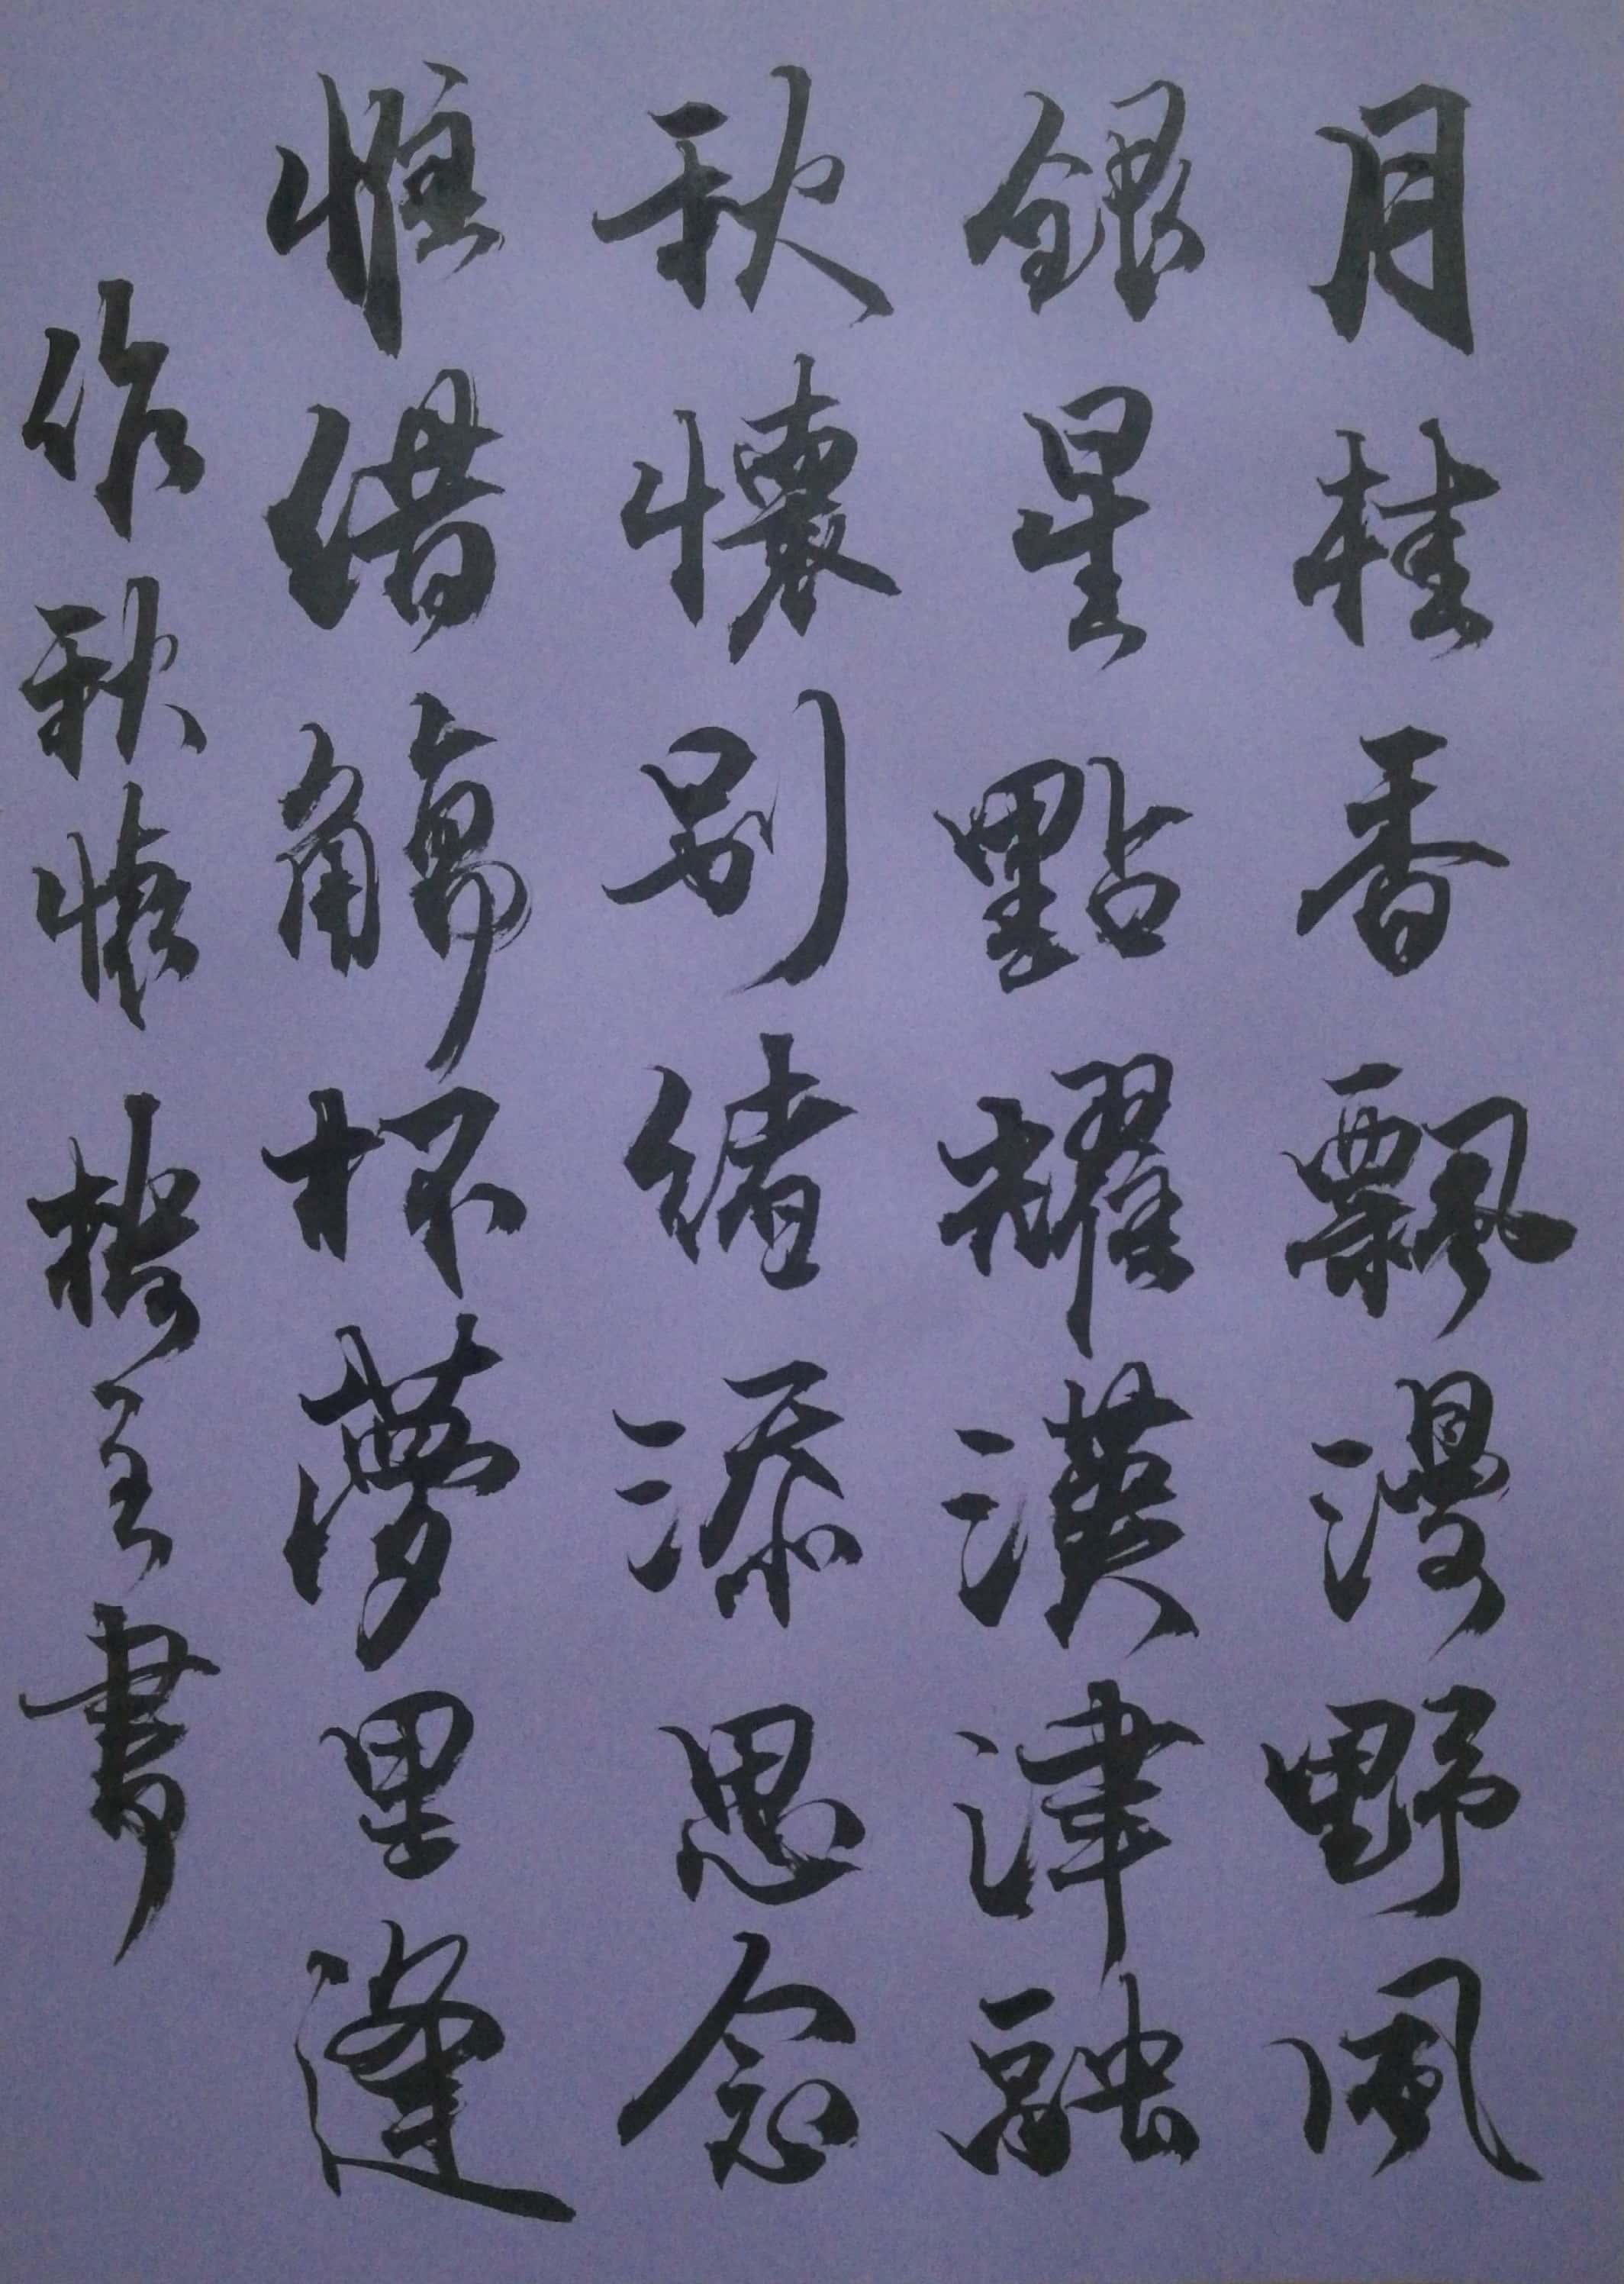 月桂香飄漫野風
銀星點耀漢津融
秋懷别緒添思念
惟借觴杯夢里逢
作秋懷 書